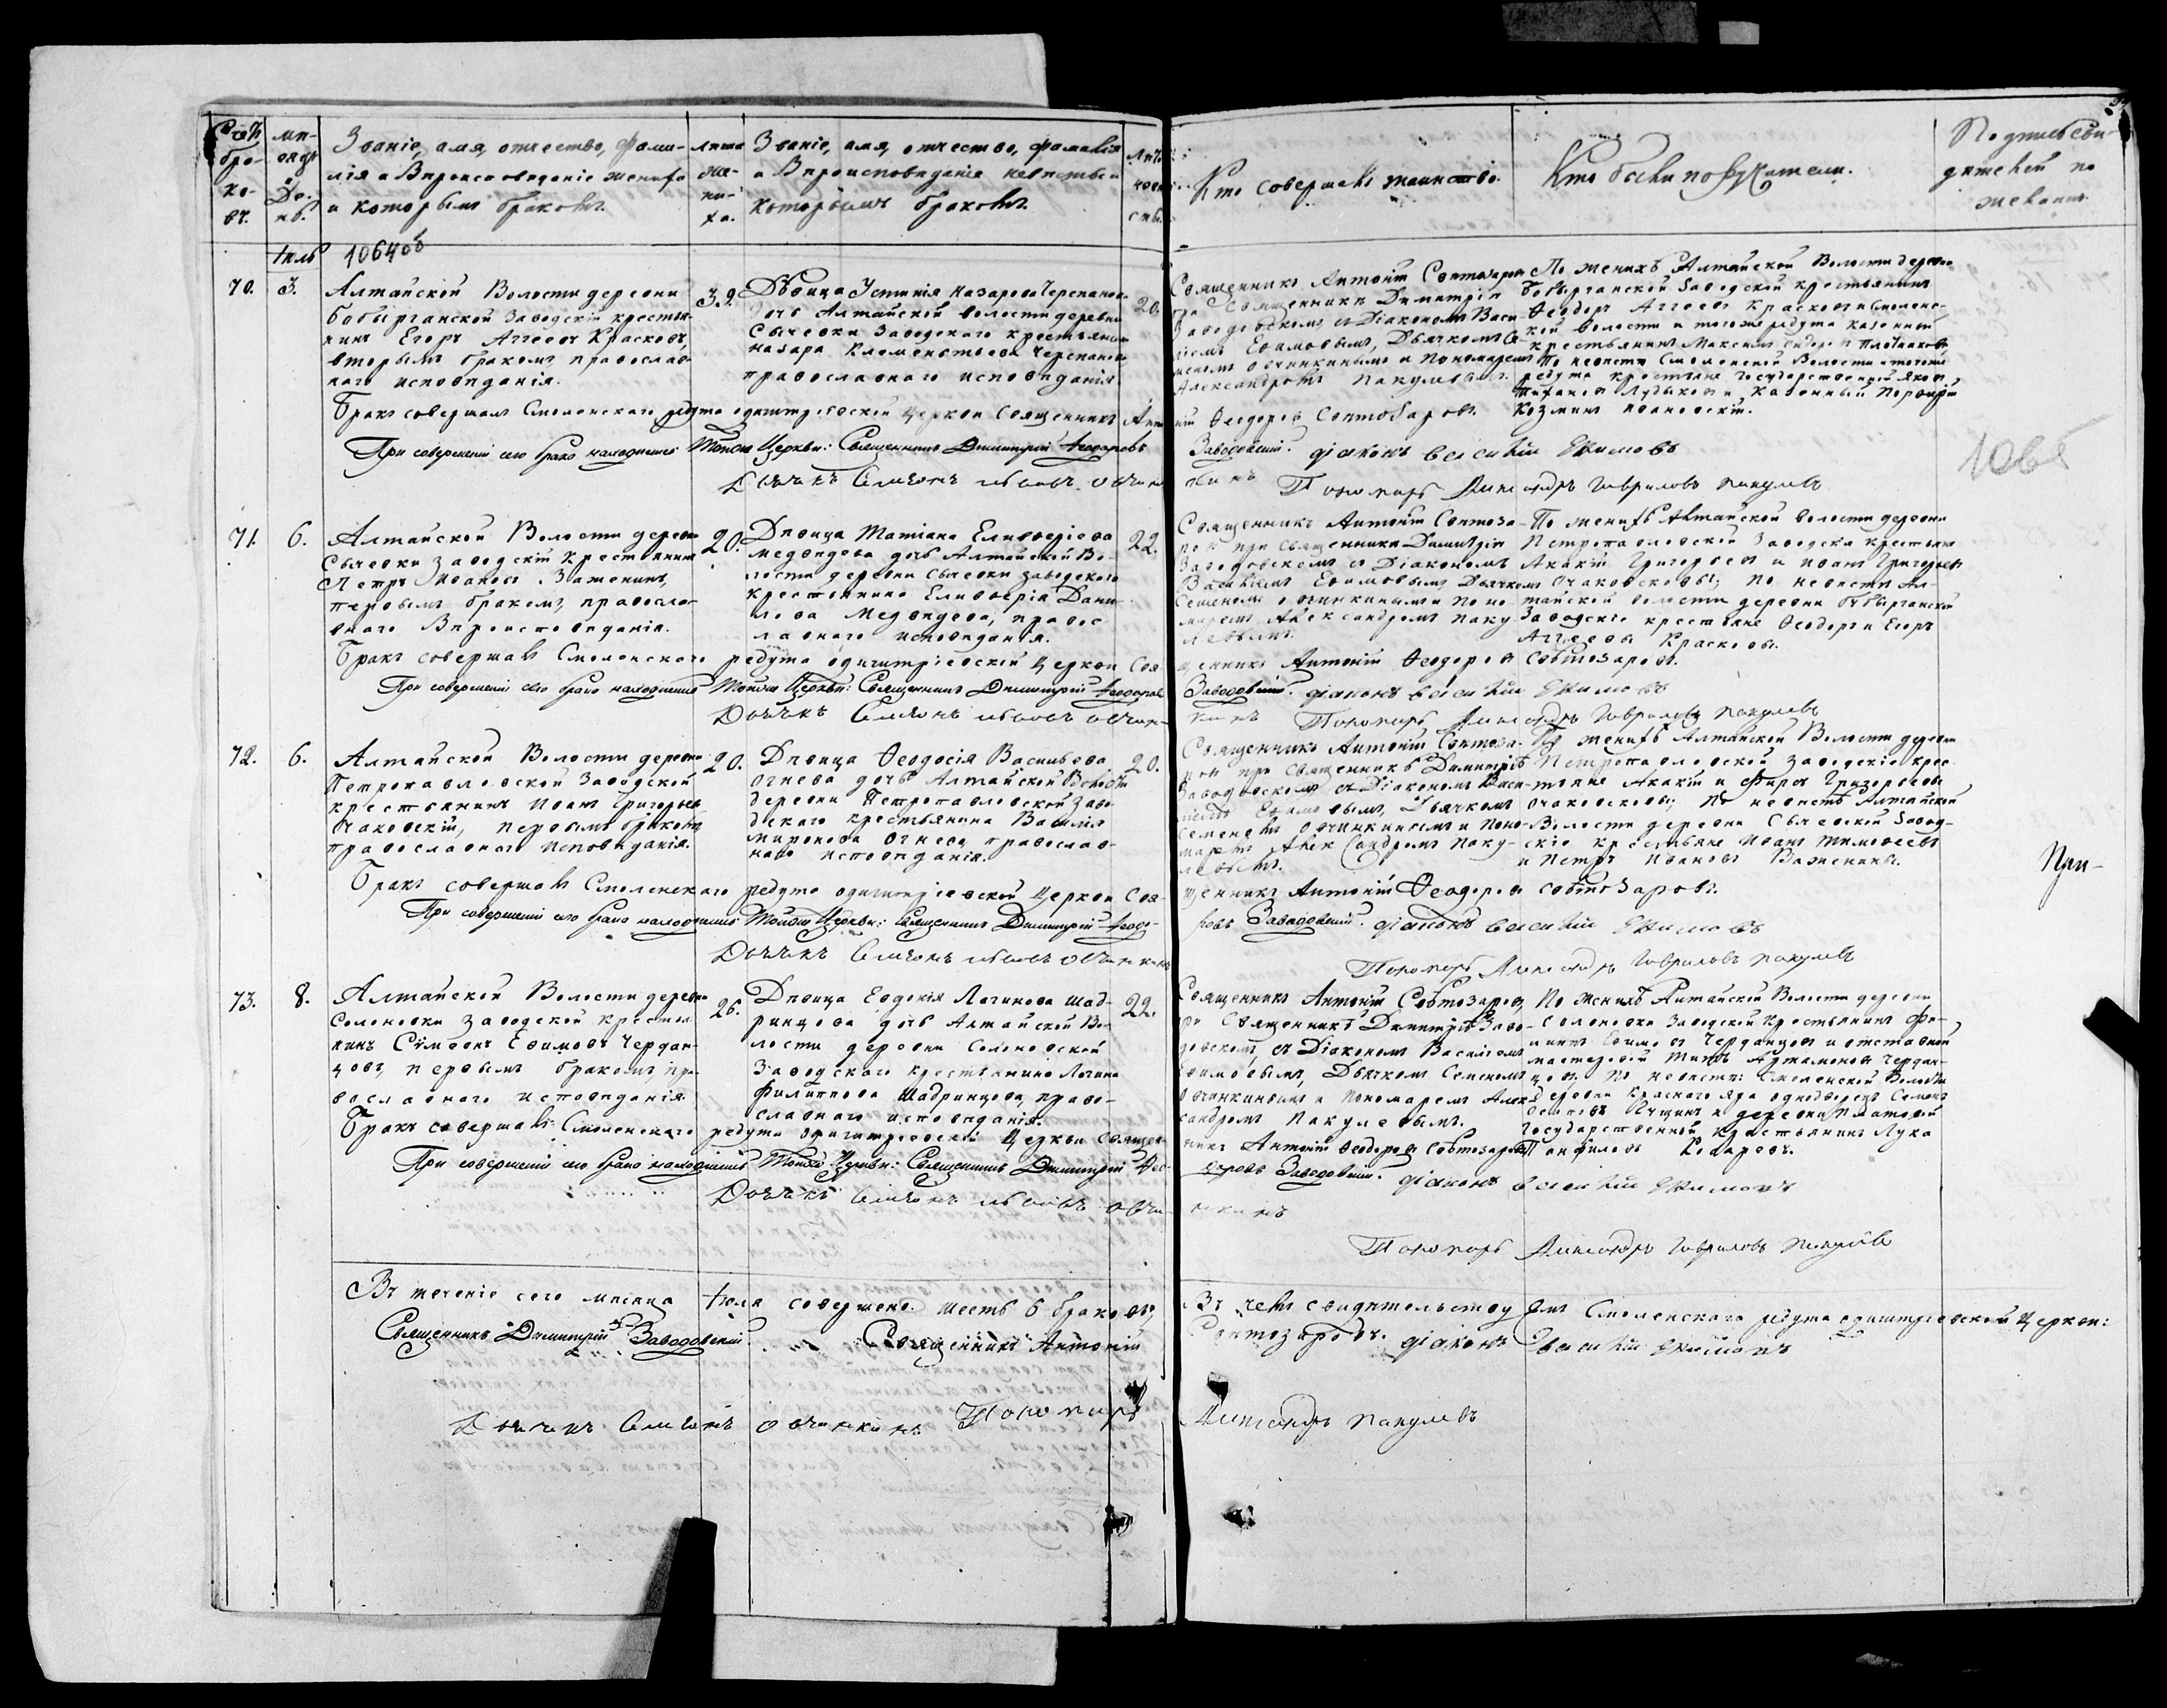 Счетъ бра-ко-въ.
Мѣ-сяцъ и День.
Званіе, имя, отчество, фами-
лія и Вѣроисповѣданіе жениха
и которымъ бракомъ.
Лѣта же-ни-ха.
Званіе, имя, отчество, фамилія
и Вѣроисповѣданія невѣсты и
которымъ бракомъ.
Лѣта невѣсты.
Кто совершалъ таинство.
Кто были поручители.
Подпись сви-
дѣтелей по
желанію.
Іюль
1064об
70.
3.
Алтайской Волости деревни
Бобырганской Заводскій крестья-
нинъ Егоръ Аггеевъ Красковъ,
вторымъ бракомъ, православ-
наго исповѣданія.
39.
Дѣвица Устинія Назарова Черепанова
дочь Алтайской волости деревни
Сычевки Заводскаго крестьянина
Назара Клементьева Черепанова
православнаго исповѣданія.
20.
Священникъ Антоній Свѣтозаровъ
при Священникѣ Димитріѣ
Заводовскомъ съ Діакономъ Васи-
ліемъ Ефимовымъ, Дьячкомъ Се-
меномъ Овчинкинымъ и Пономаремъ
Александромъ Пакулевымъ.
По женихѣ Алтайской Волости деревни
Бобырганской Заводскій крестьянинъ
Ѳеодоръ Аггеевъ Красковъ и Смоленс-
кой волости и тогоже редута казенный
крестьянинъ Максимъ Плотниковъ
По невѣстѣ Смоленской Волости и тогоже
редута крестьяне Государственный Яковъ
Лудыковъ и Казенный Порфирій
Козминъ Ивановскій.
Бракъ совершалъ Смоленскаго редута одигитріевской Церкви Священникъ Анто-
ній Ѳеодоровъ Свѣтозаровъ.
При совершеніи сего брака находились Тойже Церкви: Священникъ Димитрій Ѳеодоровъ
Заводовскій. діаконъ василій Ефимовъ
Дьячекъ Семенъ овчин-
кинъ Пономарь Александръ Гавриловъ пакулевъ
1065
71.
6.
Алтайской Волости деревни
Сычевки Заводскій Крестьянинъ
Петръ Ивановъ Важенинъ,
первымъ бракомъ, правосла-
внаго Вѣроисповѣданія.
20.
Дѣвица Татіана Елевѳеріева
Медвѣдева дочь Алтайской Во-
лости деревни Сычевки заводскаго
крестьянина Елевѳерія Дани-
лова Медвѣдева, правос-
лавнаго исповѣданія.
22.
Священникъ Антоній Свѣтоза-
ровъ при Священникѣ Димитріѣ
Заводовскомъ съ Діакономъ
Василіемъ Ефимовымъ, Дьячкомъ
Семеномъ Овчинкинымъ и Поно-
маремъ Александромъ Паку-
левымъ.
По женихѣ Алтайской волости деревни
Петропавловской Заводскіе крестьяне
Акакій Григорьевъ и Иванъ Григорьевъ
Очаковсковы; по невѣстѣ Ал-
тайской волости деревни Бобырганской
Заводскіе крестьяне Ѳеодоръ и Егоръ
Аггеевы Красковы.
Бракъ совершалъ Смоленскаго редута одигитріевской Церкви Свя-
щенникъ Антоній Ѳеодоровъ Свѣтозаровъ.
При совершеніи сего брака находились Тойже Церкви: Священникъ Димитрій Ѳеодоровъ
Заводовскій. діаконъ василій Ефимовъ
Дьячекъ Семенъ овчин-
кинъ Пономарь Александръ Гавриловъ пакулевъ
72.
6.
Алтайской Волости деревни
Петропавловской Заводской
крестьянинъ Иванъ Григорьевъ
Очаковскій, первымъ бракомъ
православнаго исповѣданія.
20.
Дѣвица Ѳеодосія Васильева
Огнева дочь Алтайской Волости
деревни Петропавловской Заво-
дскаго крестьянина Василія
Миронова Огнева православ-
наго исповѣданія.
20.
Священникъ Антоній Свѣтоза-
ровъ при Священникѣ Димитріѣ
Заводовскомъ съ Діакономъ Васи-
ліемъ Ефимовымъ, Дьячкомъ
Семеномъ Овчинкинымъ и Поно-
маремъ Александромъ Паку-
левымъ.
По женихѣ Алтайской Волости деревни
Петропавловской Заводскіе крес-
тьяне Акакій и Фирсъ Григорьевы
Очаковсковы; по невѣстѣ Алтайской
Волости деревни Сычевской Завод-
скіе крестьяне Иванъ Тимофеевъ
и Петръ Ивановъ Важенины.
Бракъ совершалъ Смоленскаго редута одигитріевской Церкви Свя-
щенникъ Антоній Ѳеодоровъ Свѣтозаровъ.
При совершеніи сего брака находились Тойже Церкви: Священникъ Димитрій Ѳеодо-
ровъ Заводовскій. діаконъ василій Ефимовъ
Дьячекъ Семенъ овчинкинъ
Пономарь Александръ Гавриловъ пакулевъ
При-
73.
8.
Алтайской Волости деревни
Солоновки Заводской крестья-
нинъ Сѵмеонъ Ефимовъ Чердан-
цовъ, первымъ бракомъ, пра-
вославнаго исповѣданія.
26.
Дѣвица Евдокія Логинова Шад-
ринцова дочь Алтайской Во-
лости деревни Солоновской
Заводскаго крестьянина Логина
Филиппова Шадринцова, право-
славнаго исповѣданія.
22.
Священникъ Антоній Свѣтозаровъ,
при Священникѣ Димитріѣ Заво-
довскомъ съ Діакономъ Василіемъ
Ефимовымъ, Дьячкомъ Семеномъ
Овчинкинымъ и Пономаремъ Алек-
сандромъ Пакулевымъ.
По женихѣ Алтайской Волости деревни
Солоновки Заводской Крестьянинъ Фи-
Ефимовъ Черданцовъ и отставной
мастеровой Титъ Артамоновъ Чердан-
цовъ; По невѣстѣ: Смоленской Волости
деревни Краснаго яра однодворецъ Семенъ
и деревни Платовой
Государственной крестьянинъ Лука
Панфиловъ Косаревъ.
Бракъ совершалъ Смоленскаго редута одигитріевской Церкви Священ-
никъ Антоній Ѳеодоровъ Свѣтозаровъ
При совершеніи сего брака находились Тойже Церкви: Священникъ Димитрій Ѳео-
доровъ Заводовскій. діаконъ василій Ефимовъ
Дьячекъ Семенъ овчин-
кинъ
Пономарь Александръ Гавриловъ пакулевъ
Въ теченіе сего мѣсяца Іюля совершено шесть 6 браковъ,
Въ чемъ свидѣтельствуемъ Смоленскаго редута одигитріевской Церкви:
Священникъ Димитрій Заводовскій. Священникъ Антоній
Свѣтозаровъ. діаконъ василій Ефимовъ
Дьячекъ Семенъ овчинкинъ Пономарь
Александръ пакулевъ